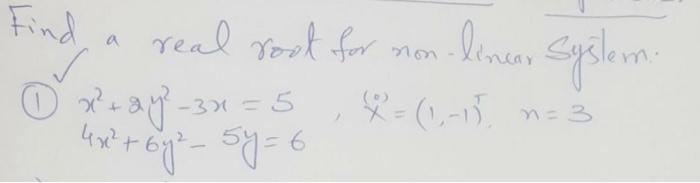 Find a real root for non-linear System.
① x² + 2y² - 3x = 5 , X⁽⁰⁾ = (1, -1)ᵀ, n = 3
4x² + 6y² - 5y = 6